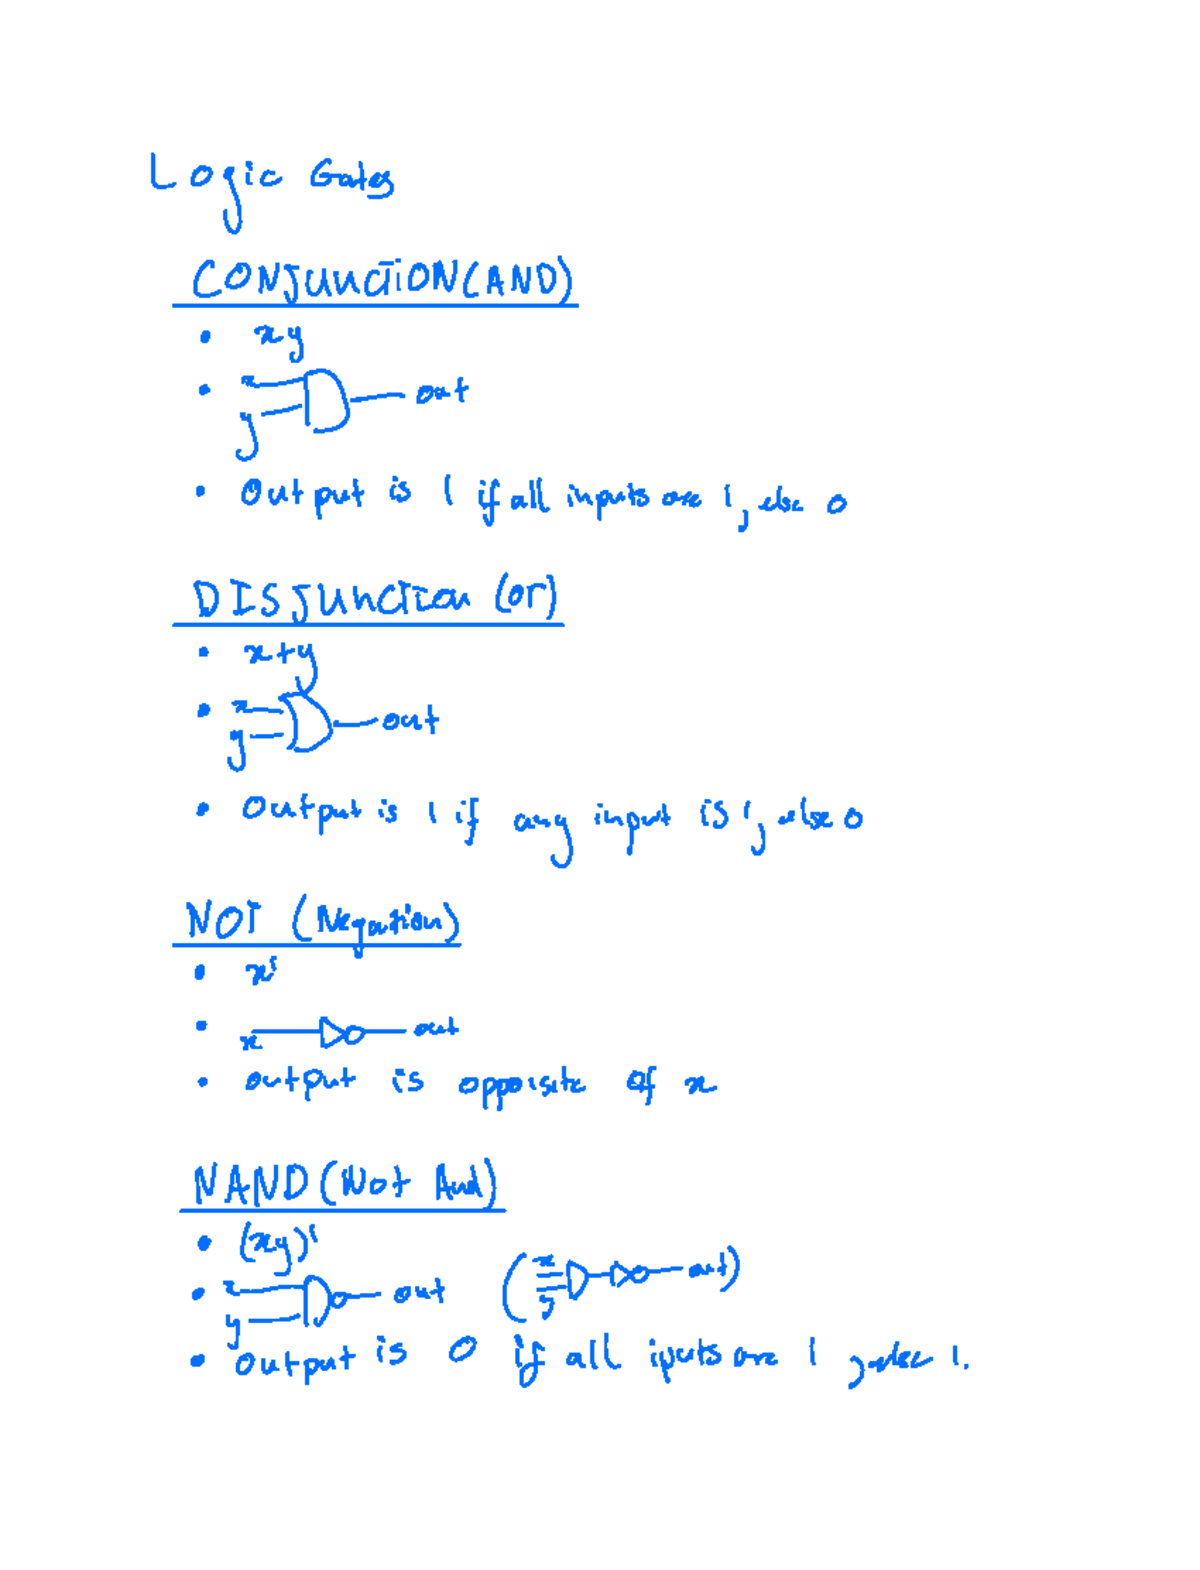 Logic Gates
CONJunctiON(AND)
• xy
• x
y
out
• Output is 1 if all inputs are 1, else 0
DISjunction (or)
• x+y
• x
y
out
• Output is 1 if any input is 1, else 0
NOT (Negation)
• x'
• x out
• output is opposite of x
NAND (Not And)
• (xy)'
• x
y
out
( x
y
out)
• Output is 0 if all iputs are 1, else 1.